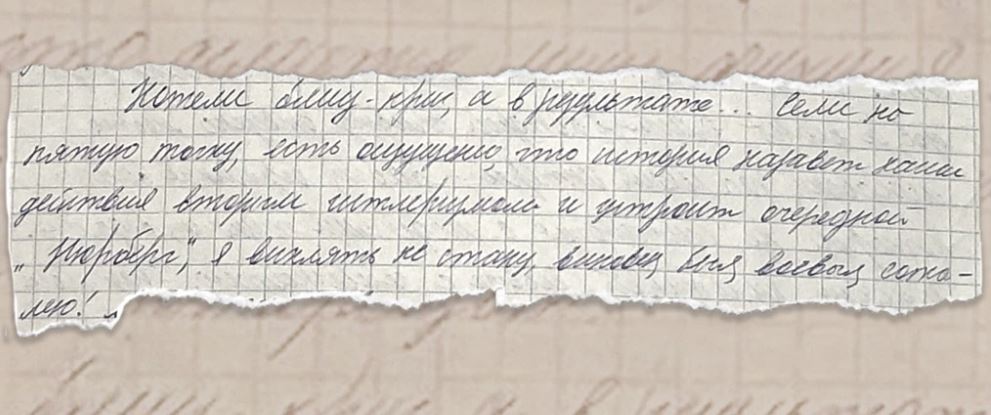 Хотели блиц-криг, а в результате... Сели на
пятую точку, есть ощущение, что история назовет наши
действия вторым гитлеризмом и устроит очередной
„Нюрберг", я вилять не стану, виновен, был, воевал, сожа-
лею!